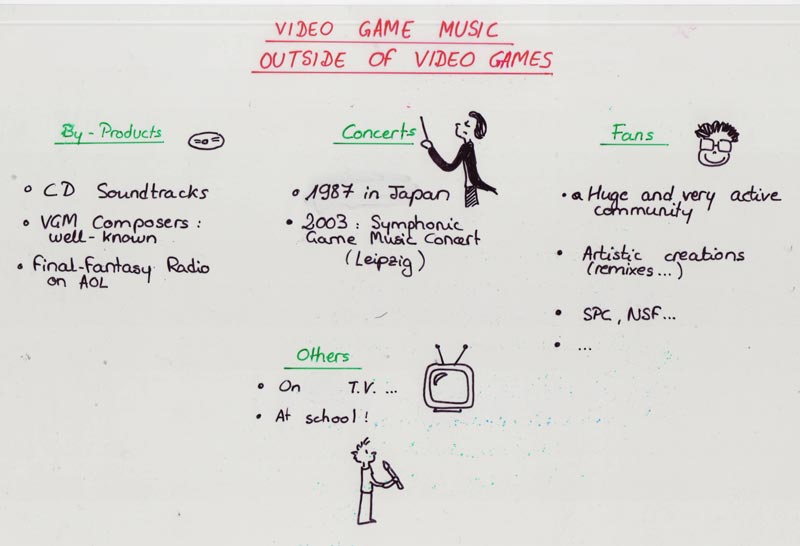 VIDEO GAME MUSIC
OUTSIDE OF VIDEO GAMES
By-Products
• CD Soundtracks
• VGM Composers :
well-known
• Final-Fantasy Radio
on AOL
Concerts
• 1987 in Japan
• 2003 : Symphonic
Game Music Concert
(Leipzig)
Fans
• a Huge and very active
community
• Artistic creations
(remixes...)
• SPC, NSF...
• ...
Others
• On T.V. ...
• At school !